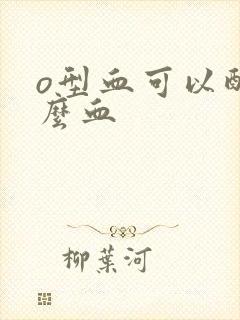 o型血可以配
麼血
柳葉河